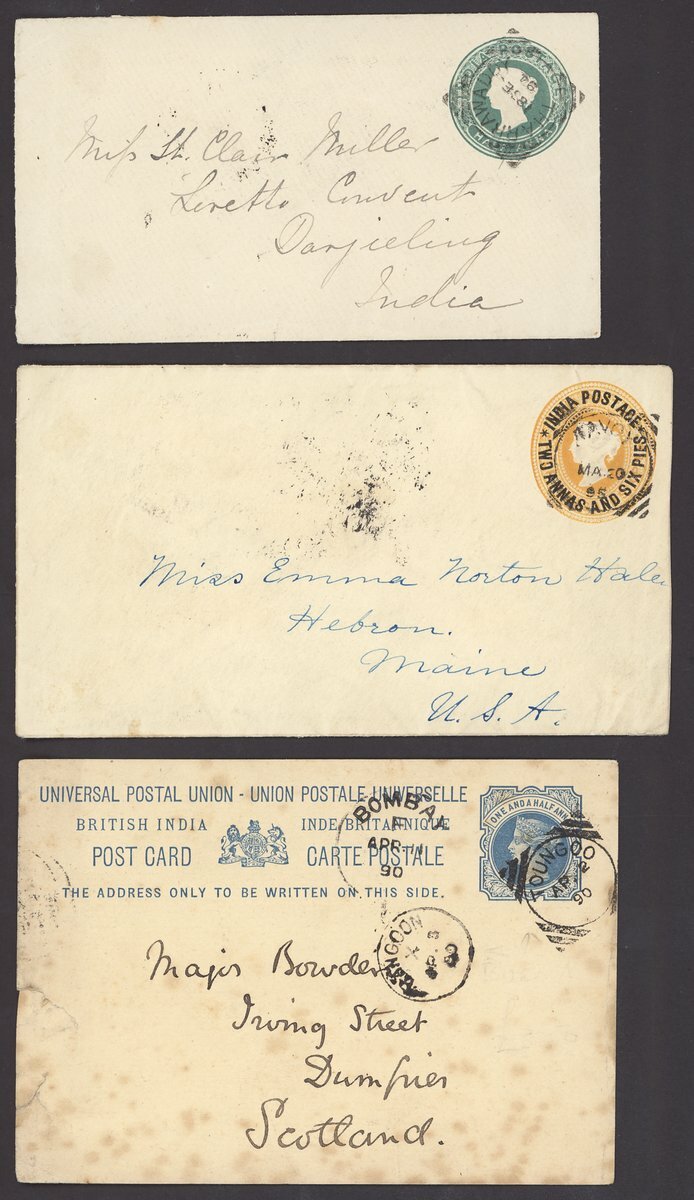 INDIA POSTAGE
HALF ANNA
THARRAWADDY
SE
94
Miss St. Clair Miller
Loretto Convent
Darjeeling
India
INDIA POSTAGE
TWO ANNAS AND SIX PIES
TAVOY
MA 20
Miss Emma Norton Hale
Hebron.
Maine
U.S.A.
UNIVERSAL POSTAL UNION - UNION POSTALE UNIVERSELLE
BRITISH INDIA INDE BRITANNIQUE
POST CARD CARTE POSTALE
THE ADDRESS ONLY TO BE WRITTEN ON THIS SIDE.
ONE AND A HALF ANNA
BOMBAY
APR
90
TOUNGOO
AP 2
90
RANGOON
Major Bowden
Irving Street
Dumfries
Scotland.